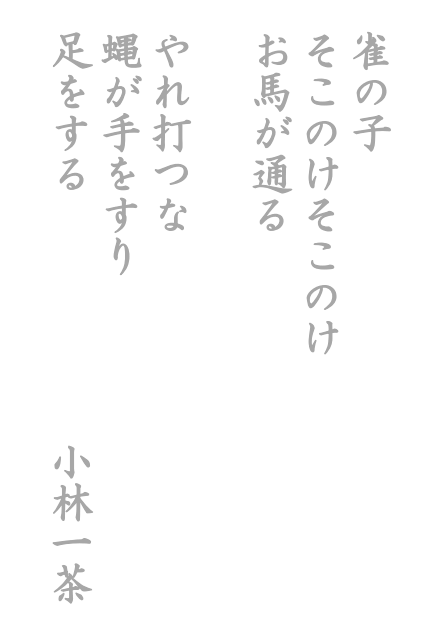 雀の子
そこのけそこのけ
お馬が通る
やれ打つな
蝿が手をすり
足をする
小林一茶